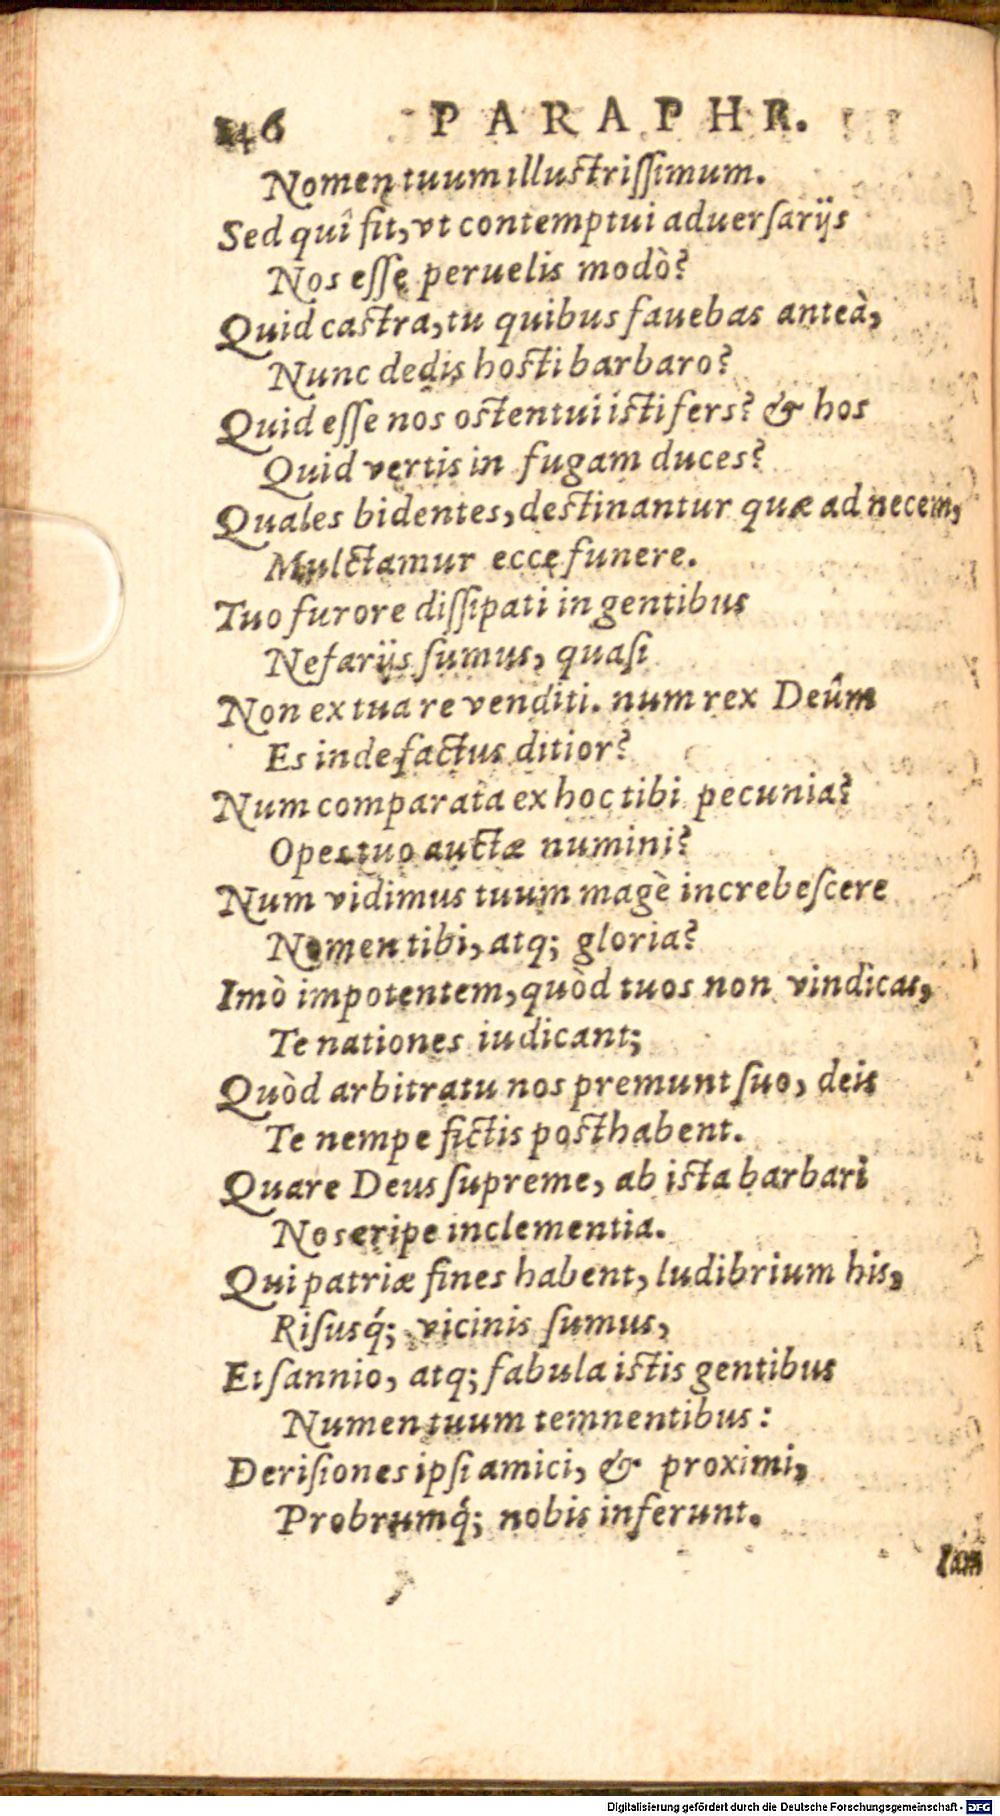 146 PARAPHR.
Nomen tuum illustrißimum.
Sed quî fit, vt contemptui aduerſarijs
Nos eſſe peruelis modò?
Quid castra, tu quibus fauebas anteà,
Nunc dedis hosti barbaro?
Quid eſſe nos ostentui isti fers? & hos
Quid vertis in fugam duces?
Quales bidentes, destinantur quæ ad necem,
Mulctamur ecce funere.
Tuo furore dißipati in gentibus
Nefarijs ſumus, quaſi
Non ex tua re venditi. num rex Deûm
Es inde factus ditior?
Num comparata ex hoc tibi pecunia?
Opes tuo auctæ numini?
Num vidimus tuum magè increbeſcere
Nomen tibi, atq; gloria?
Imò impotentem, quòd tuos non vindicas,
Te nationes iudicant;
Quòd arbitratu nos premunt ſuo, deis
Te nempe fictis posthabent.
Quare Deus ſupreme, ab ista barbari
Nos eripe inclementia.
Qui patriæ fines habent, ludibrium his,
Riſusq́; vicinis ſumus,
Et ſannio, atq; fabula istis gentibus
Numen tuum temnentibus:
Deriſiones ipſi amici, & proximi,
Probrumq́; nobis inferunt.
Iam
Digitalisierung gefördert durch die Deutsche Forschungsgemeinschaft - DFG